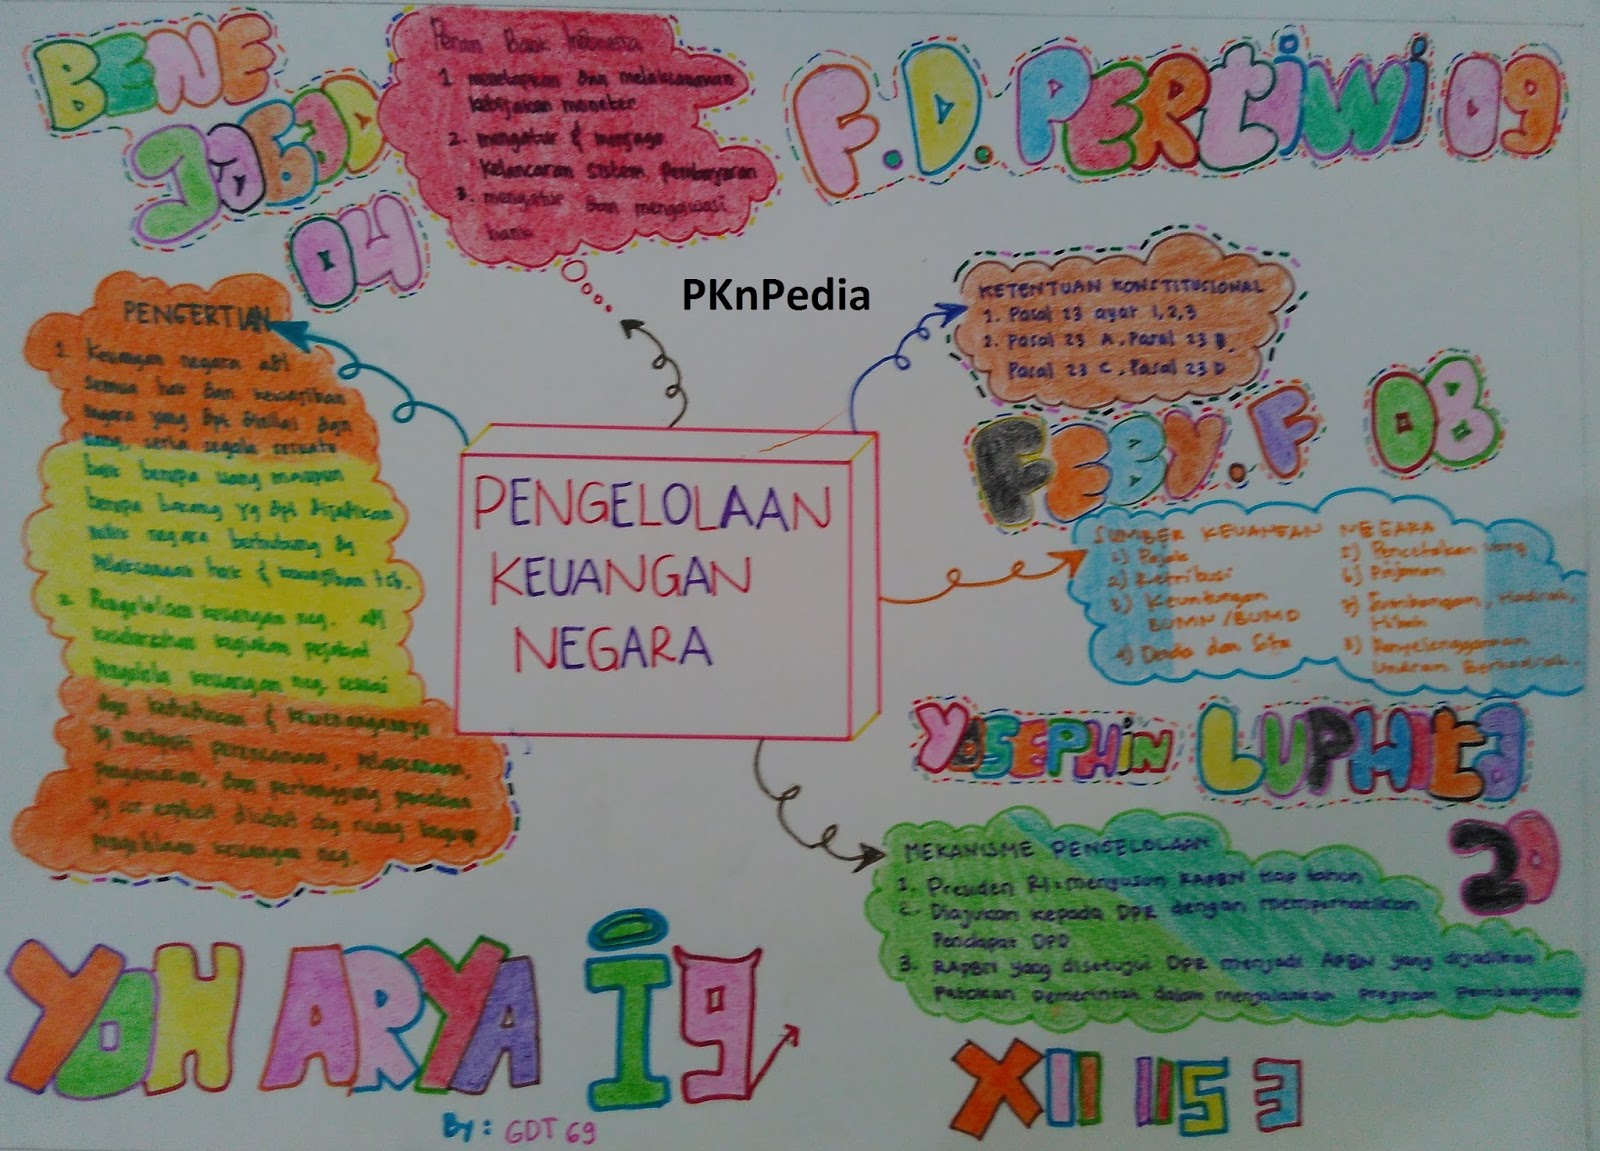 BENE
JOGAD
04
Peran Bank Indonesia
1. menetapkan dan melaksanakan
kebijakan moneter
2. mengatur & menjaga
kelancaran sistem pembayaran
3. mengatur dan mengawasi
bank
F.D. PERTIWI 09
PKnPedia
KETENTUAN KONSTITUSIONAL
1. Pasal 23 ayat 1,2,3
2. Pasal 23 A, Pasal 23 B,
Pasal 23 C, Pasal 23 D
FEBY.F 08
PENGERTIAN
1. Keuangan negara adl
semua hak dan kewajiban
negara yang dpt dinilai dgn
uang, serta segala sesuatu
baik berupa uang maupun
berupa barang yg dpt dijadikan
milik negara berhubung dg
pelaksanaan hak & kewajiban tsb.
2. Pengelolaan keuangan neg. adl
keseluruhan kegiatan pejabat
pengelola keuangan neg. sesuai
dgn kedudukan & kewenangannya
yg meliputi perencanaan, pelaksanaan,
pengawasan, dan pertanggung jawaban
yg scr explisit disebut dng ruang lingkup
pengelolaan keuangan neg.
PENGELOLAAN
KEUANGAN
NEGARA
SUMBER KEUANGAN NEGARA
1) Pajak
2) Retribusi
3) Keuntungan
BUMN/BUMD
4) Denda dan Sita
5) Pencetakan uang
6) Pinjaman
7) Sumbangan, Hadiah,
Hibah
8) Penyelenggaraan
Undian Berhadiah.
YOSEPHIN LUPHITA
20
MEKANISME PENGELOLAAN
1. Presiden RI menyusun RAPBN tiap tahun
2. Diajukan kepada DPR dengan memperhatikan
Pendapat DPD
3. RAPBN yang disetujui DPR menjadi APBN yang dijadikan
Patokan Pemerintah dalam menjalankan Program Pembangunan
YOH ARYA I 19
By: GDT 69
XII IIS 3